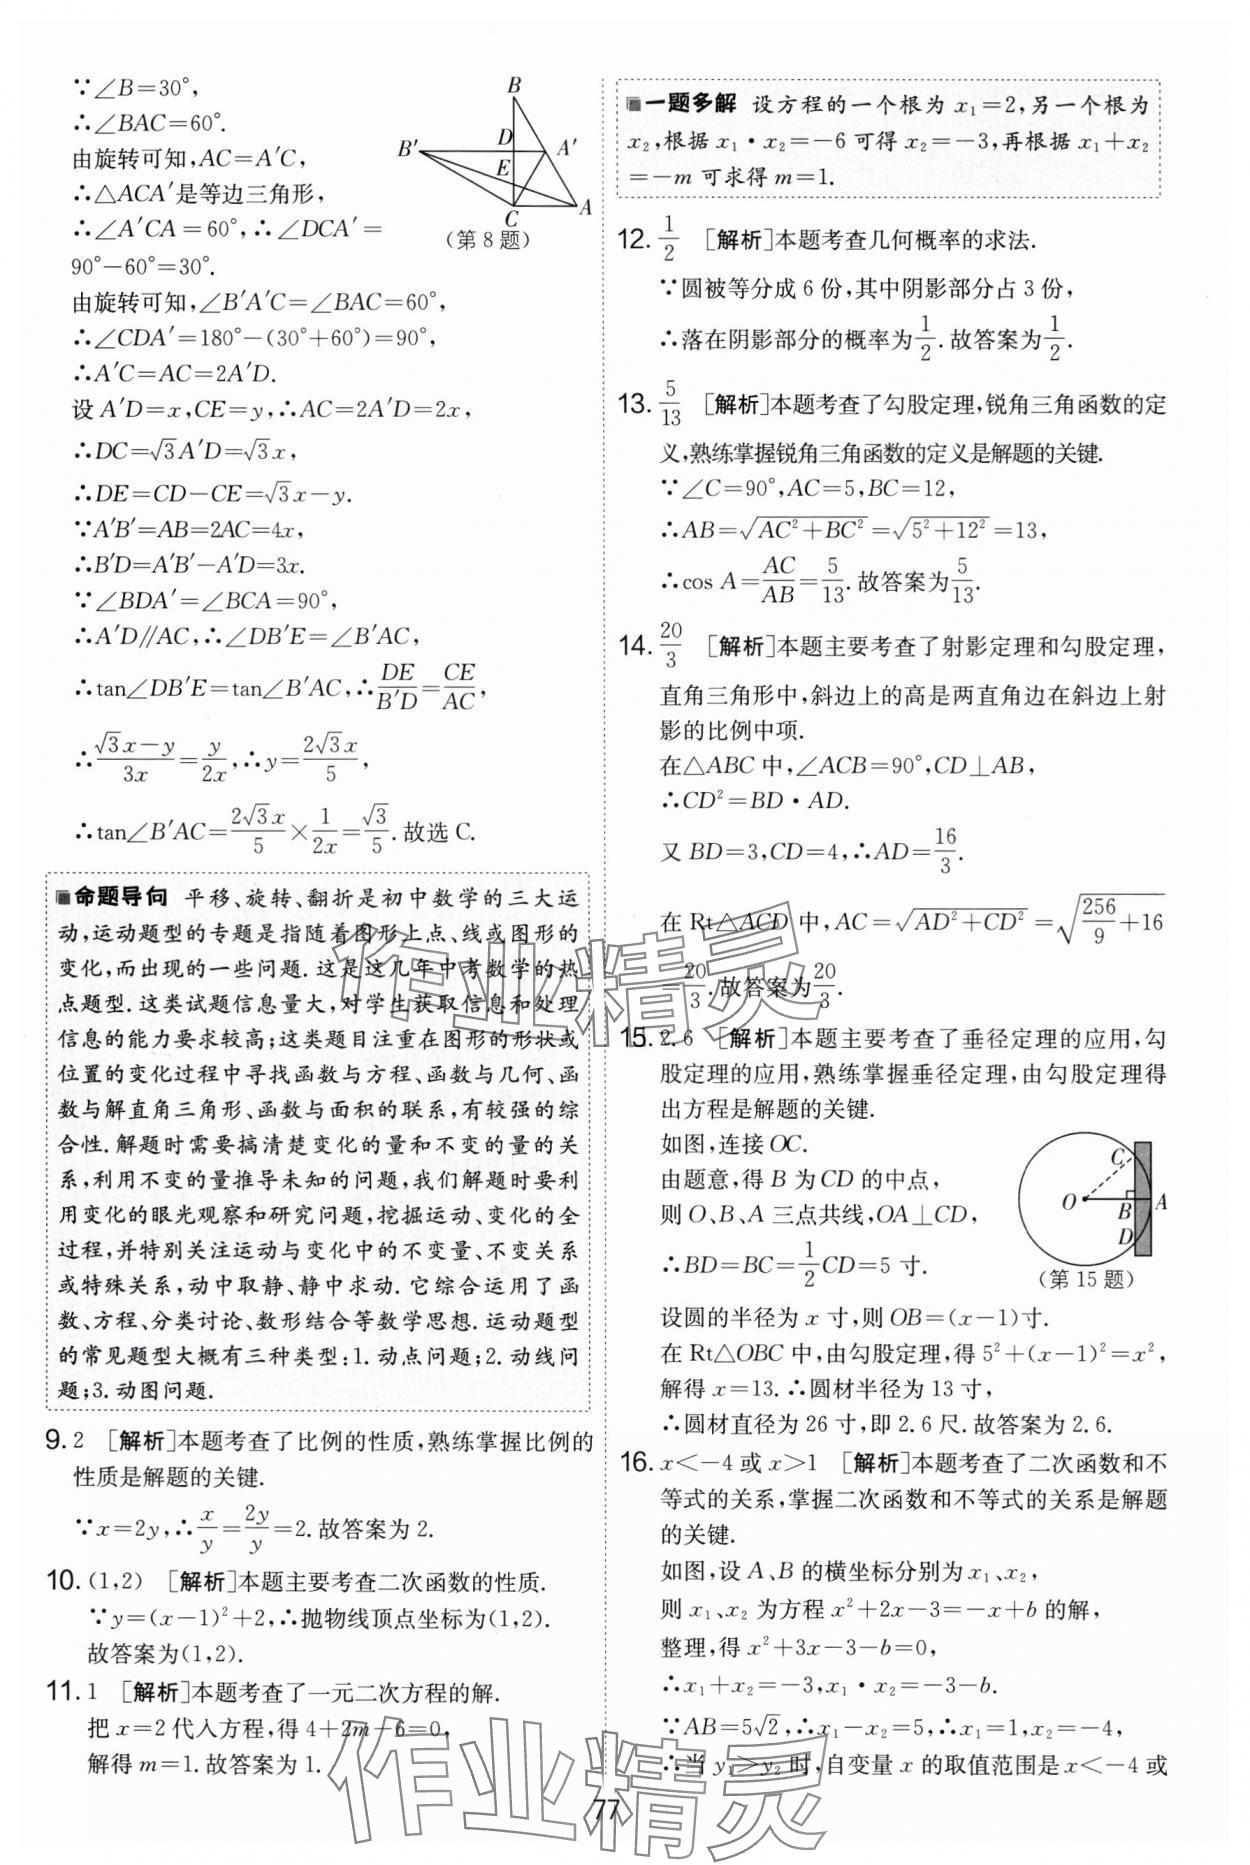 ∵∠B=30°,
∴∠BAC=60°.
由旋转可知,AC=A'C,
∴△ACA'是等边三角形,
∴∠A'CA=60°,∴∠DCA'=
90°-60°=30°.
B
D
B'
A'
E
C
A
(第8题)
由旋转可知,∠B'A'C=∠BAC=60°,
∴∠CDA'=180°-(30°+60°)=90°,
∴A'C=AC=2A'D.
设A'D=x,CE=y,∴AC=2A'D=2x,
∴DC=√3A'D=√3x,
∴DE=CD-CE=√3x-y.
∵A'B'=AB=2AC=4x,
∴B'D=A'B'-A'D=3x.
∵∠BDA'=∠BCA=90°,
∴A'D∥AC,∴∠DB'E=∠B'AC,
∴tan∠DB'E=tan∠B'AC,∴DE/B'D=CE/AC,
∴(√3x-y)/3x=y/2x,∴y=2√3x/5,
∴tan∠B'AC=2√3x/5×1/2x=√3/5.故选C.
命题导向 平移、旋转、翻折是初中数学的三大运
动,运动题型的专题是指随着图形上点、线或图形的
变化,而出现的一些问题.这是这几年中考数学的热
点题型.这类试题信息量大,对学生获取信息和处理
信息的能力要求较高;这类题目注重在图形的形状或
位置的变化过程中寻找函数与方程、函数与几何、函
数与解直角三角形、函数与面积的联系,有较强的综
合性.解题时需要搞清楚变化的量和不变的量的关
系,利用不变的量推导未知的问题,我们解题时要利
用变化的眼光观察和研究问题,挖掘运动、变化的全
过程,并特别关注运动与变化中的不变量、不变关系
或特殊关系,动中取静、静中求动.它综合运用了函
数、方程、分类讨论、数形结合等数学思想.运动题型
的常见题型大概有三种类型:1.动点问题;2.动线问
题;3.动图问题.
9.2 [解析]本题考查了比例的性质,熟练掌握比例的
性质是解题的关键.
∵x=2y,∴x/y=2y/y=2.故答案为2.
10.(1,2) [解析]本题主要考查二次函数的性质.
∵y=(x-1)²+2,∴抛物线顶点坐标为(1,2).
故答案为(1,2).
11.1 [解析]本题考查了一元二次方程的解.
把x=2代入方程,得4+2m-6=0,
解得m=1.故答案为1.
一题多解 设方程的一个根为x₁=2,另一个根为
x₂,根据x₁·x₂=-6可得x₂=-3,再根据x₁+x₂
=-m可求得m=1.
12.1/2 [解析]本题考查几何概率的求法.
∵圆被等分成6份,其中阴影部分占3份,
∴落在阴影部分的概率为1/2.故答案为1/2.
13.5/13 [解析]本题考查了勾股定理,锐角三角函数的定
义,熟练掌握锐角三角函数的定义是解题的关键.
∵∠C=90°,AC=5,BC=12,
∴AB=√(AC²+BC²)=√(5²+12²)=13,
∴cos A=AC/AB=5/13.故答案为5/13.
14.20/3 [解析]本题主要考查了射影定理和勾股定理,
直角三角形中,斜边上的高是两直角边在斜边上射
影的比例中项.
在△ABC中,∠ACB=90°,CD⊥AB,
∴CD²=BD·AD.
又BD=3,CD=4,∴AD=16/3.
在Rt△ACD中,AC=√(AD²+CD²)=√(256/9+16)
=20/3.故答案为20/3.
15.2.6 [解析]本题主要考查了垂径定理的应用,勾
股定理的应用,熟练掌握垂径定理,由勾股定理得
出方程是解题的关键.
如图,连接OC.
由题意,得B为CD的中点,
则O、B、A三点共线,OA⊥CD,
∴BD=BC=1/2CD=5寸.
C
O
B
A
D
(第15题)
设圆的半径为x寸,则OB=(x-1)寸.
在Rt△OBC中,由勾股定理,得5²+(x-1)²=x²,
解得x=13.∴圆材半径为13寸,
∴圆材直径为26寸,即2.6尺.故答案为2.6.
16.x<-4或x>1 [解析]本题考查了二次函数和不
等式的关系,掌握二次函数和不等式的关系是解题
的关键.
如图,设A、B的横坐标分别为x₁、x₂,
则x₁、x₂为方程x²+2x-3=-x+b的解,
整理,得x²+3x-3-b=0,
∴x₁+x₂=-3,x₁·x₂=-3-b.
∵AB=5√2,∴x₁-x₂=5,∴x₁=1,x₂=-4,
∴当y₁>y₂时,自变量x的取值范围是x<-4或
77
作业精灵
作业精灵